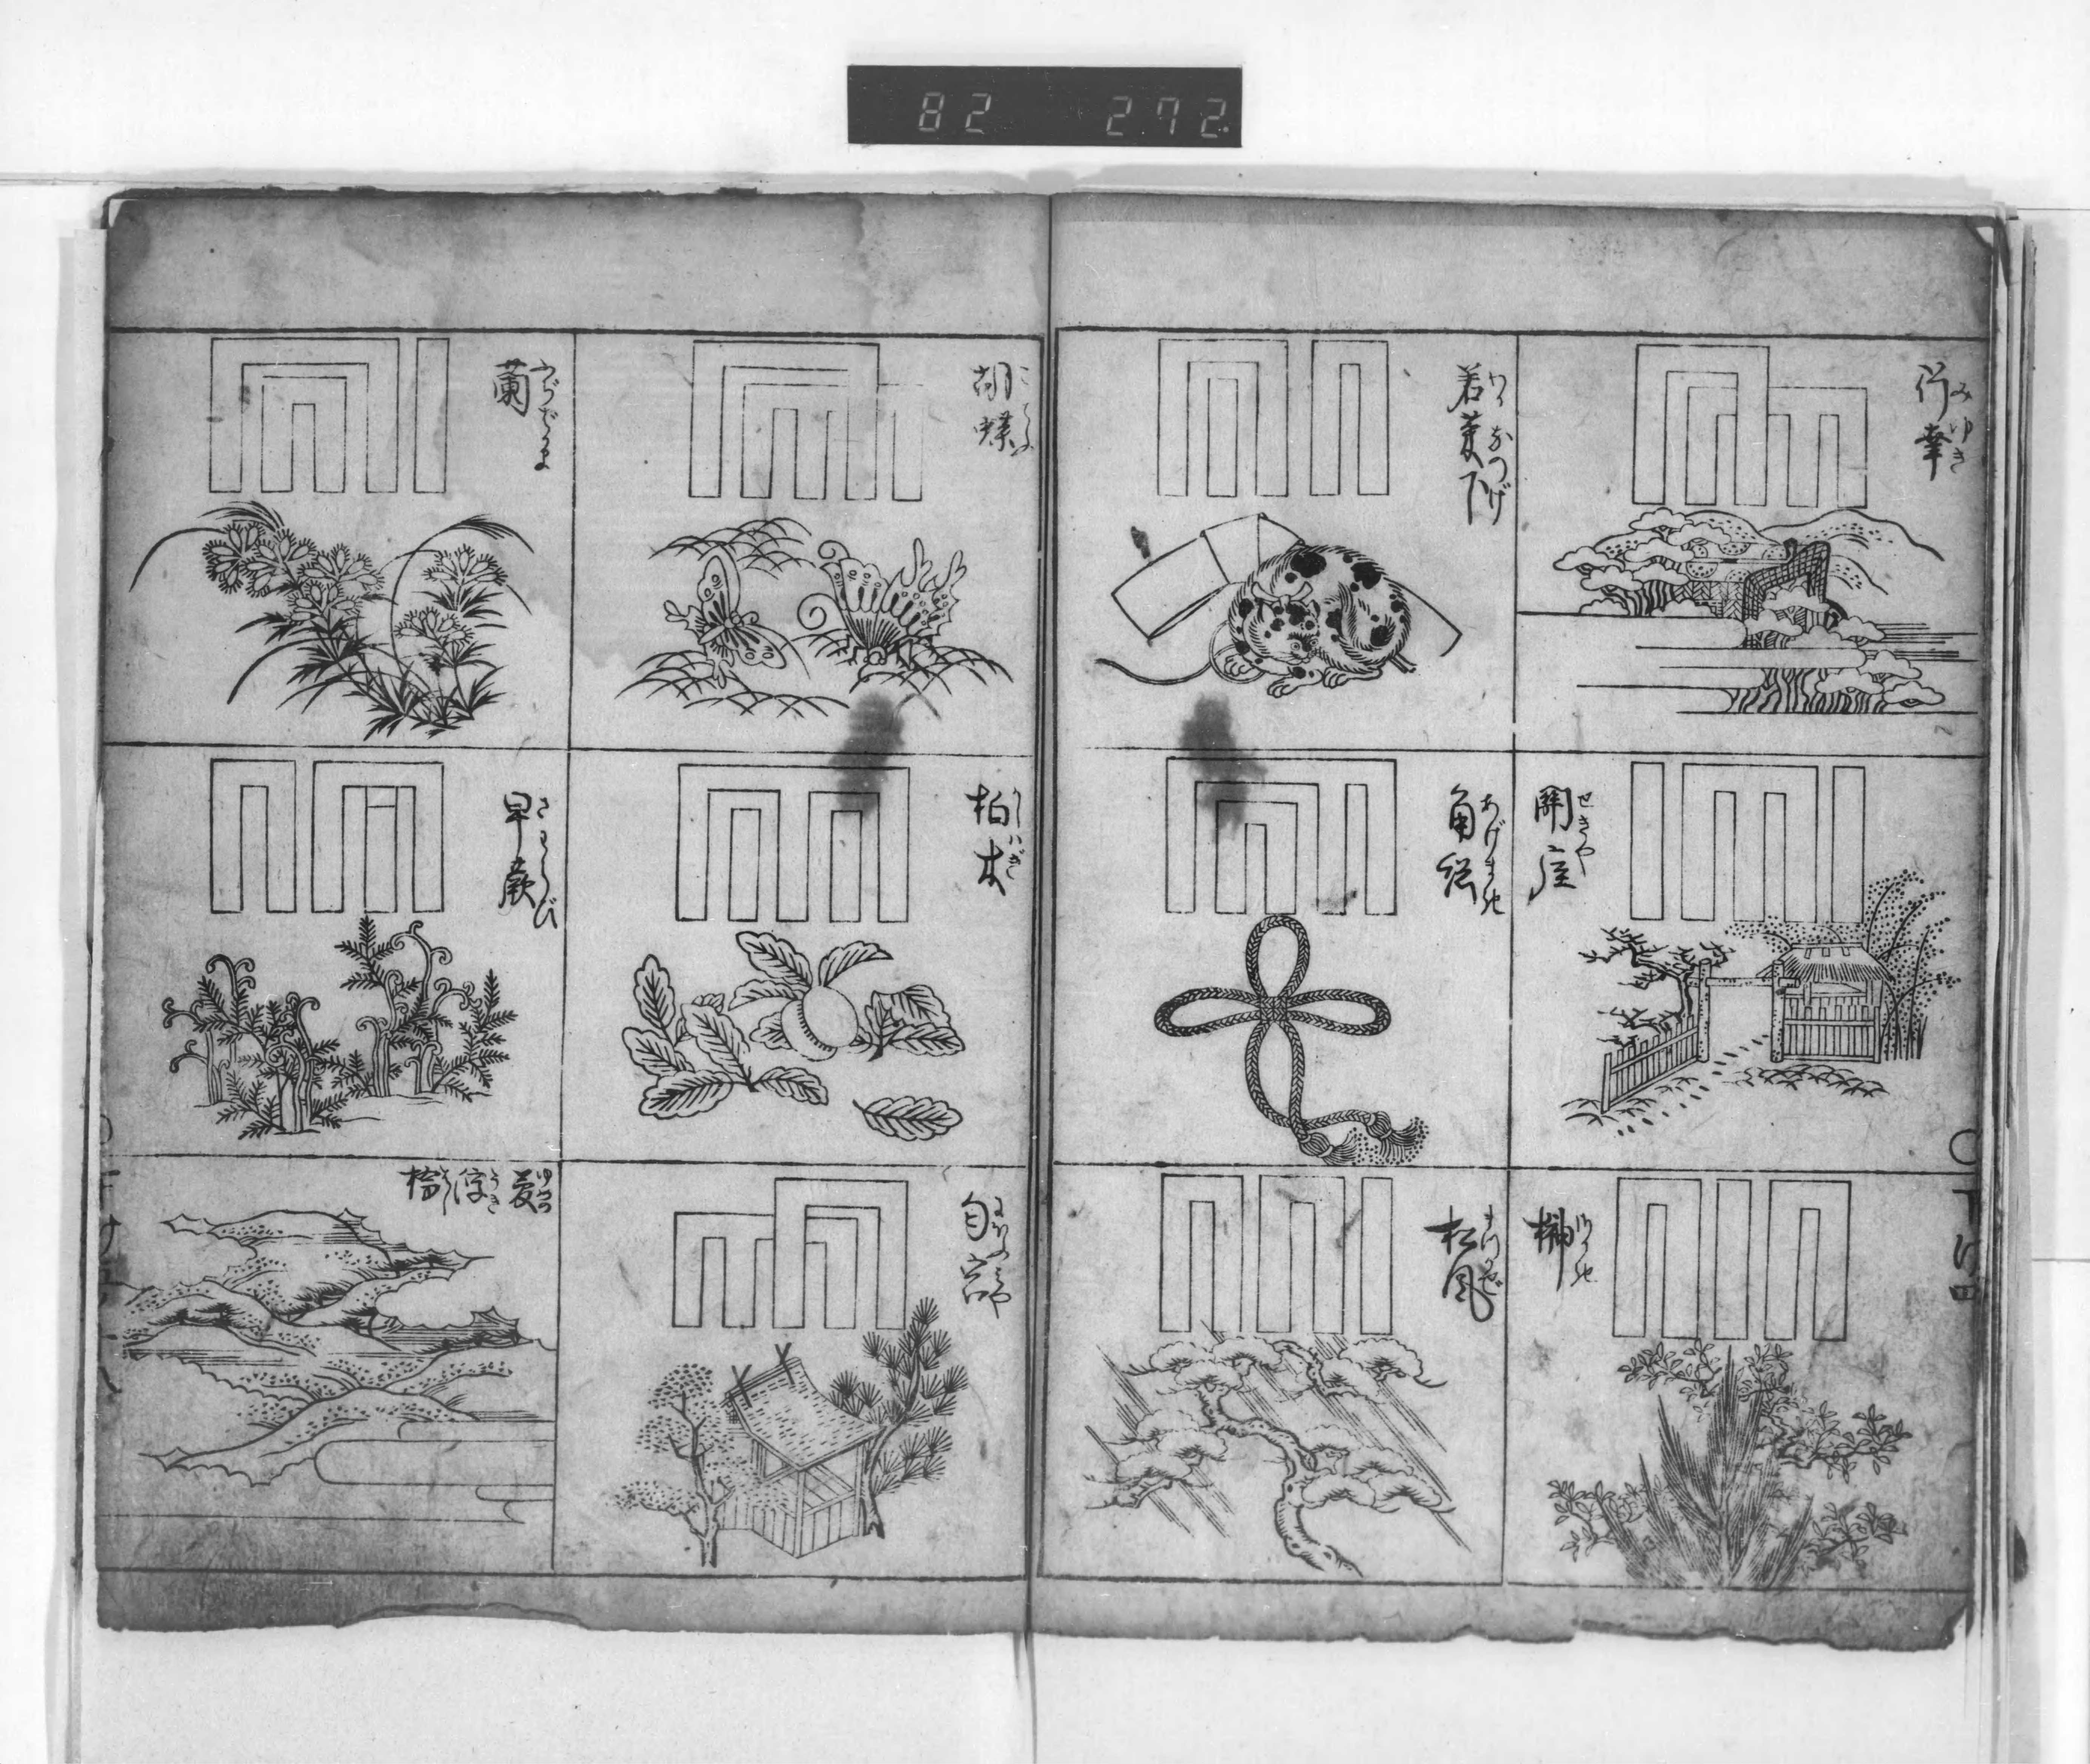 82 272
行幸
みゆき
若菜下
わかなのげ
関屋
せきや
角総
あげまき
榊
さかき
松風
まつかぜ
胡蝶
こてふ
蘭
ふぢばかま
柏木
かしハぎ
早蕨
さわらび
匂宮
にほふみや
夢浮橋
ゆめの
うき
はし